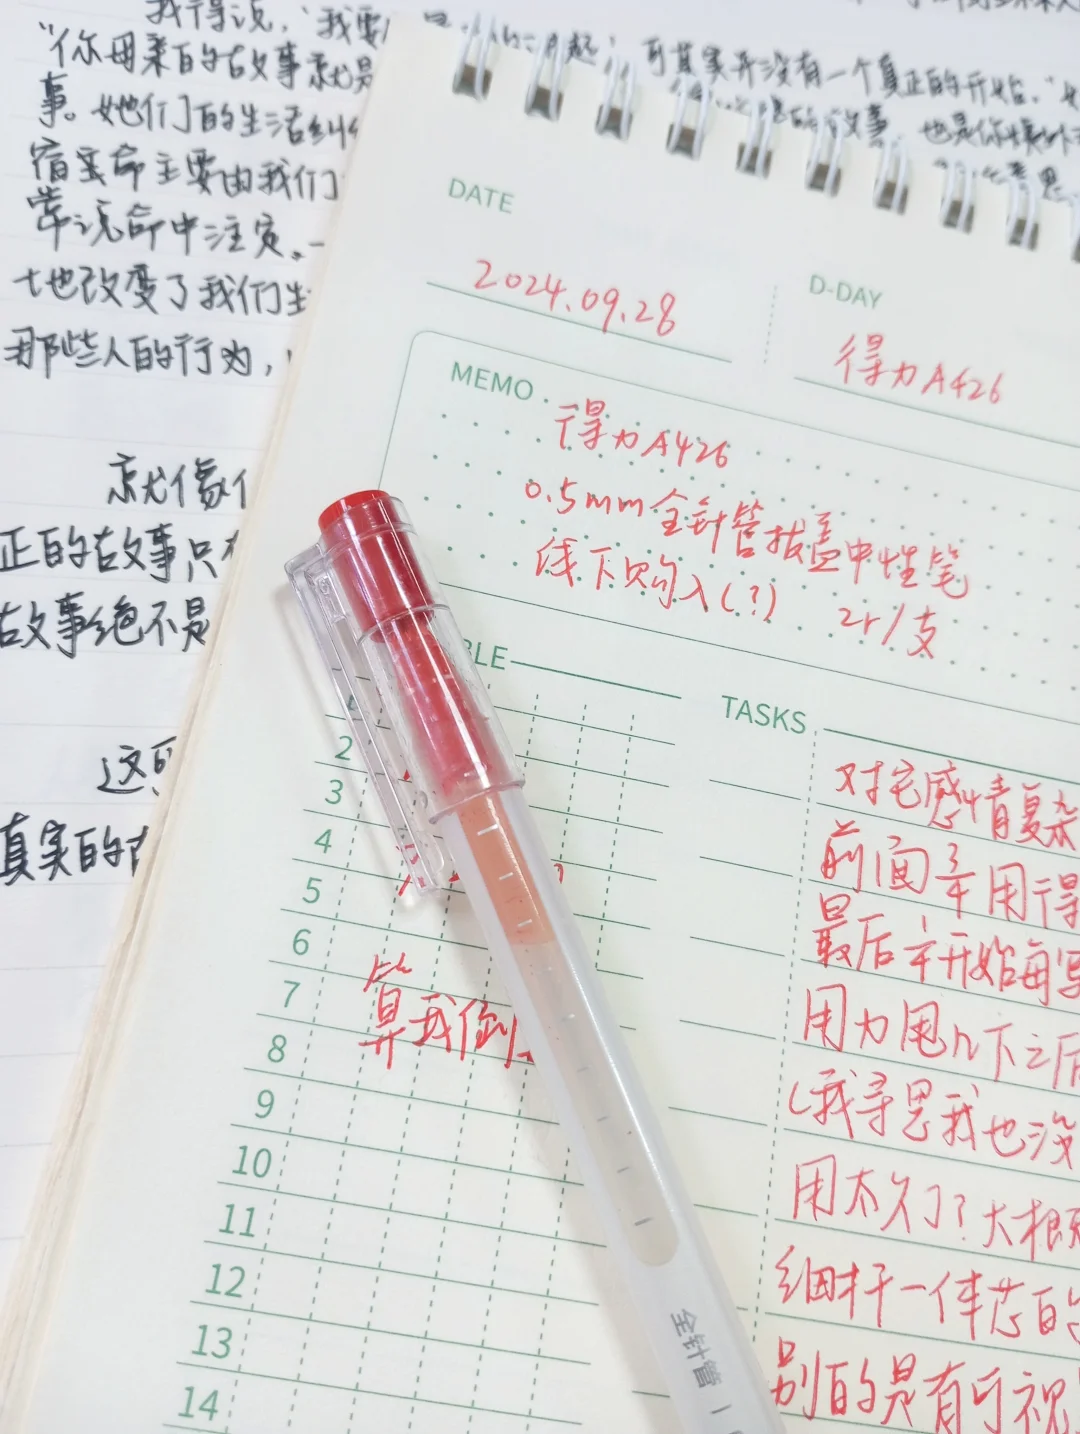 我得说，“我要
“你母亲的故事就是
可其实并没有一个真正的开始。”
事。她们的生活纠
的故事，也是你
宿
命主要由我们
意思
常说命中注定。一
地改变了我们生
那些人的行为，
就像
正的故事只
故事绝不是
这
真实的
DATE
2024.09.28
D-DAY
得力A426
MEMO
得力A426
0.5mm全针管拔盖中性笔
线下购入(?) 2r/支
BLE
2
3
4
5
6
7
8
9
10
11
12
13
14
算我倒
TASKS
对它感情复杂
前面半用得
最后半开始每写
用力甩几下之后
(我寻思我也没
用太久了?大概
细杆一体芯的
别的是有可视
全针管